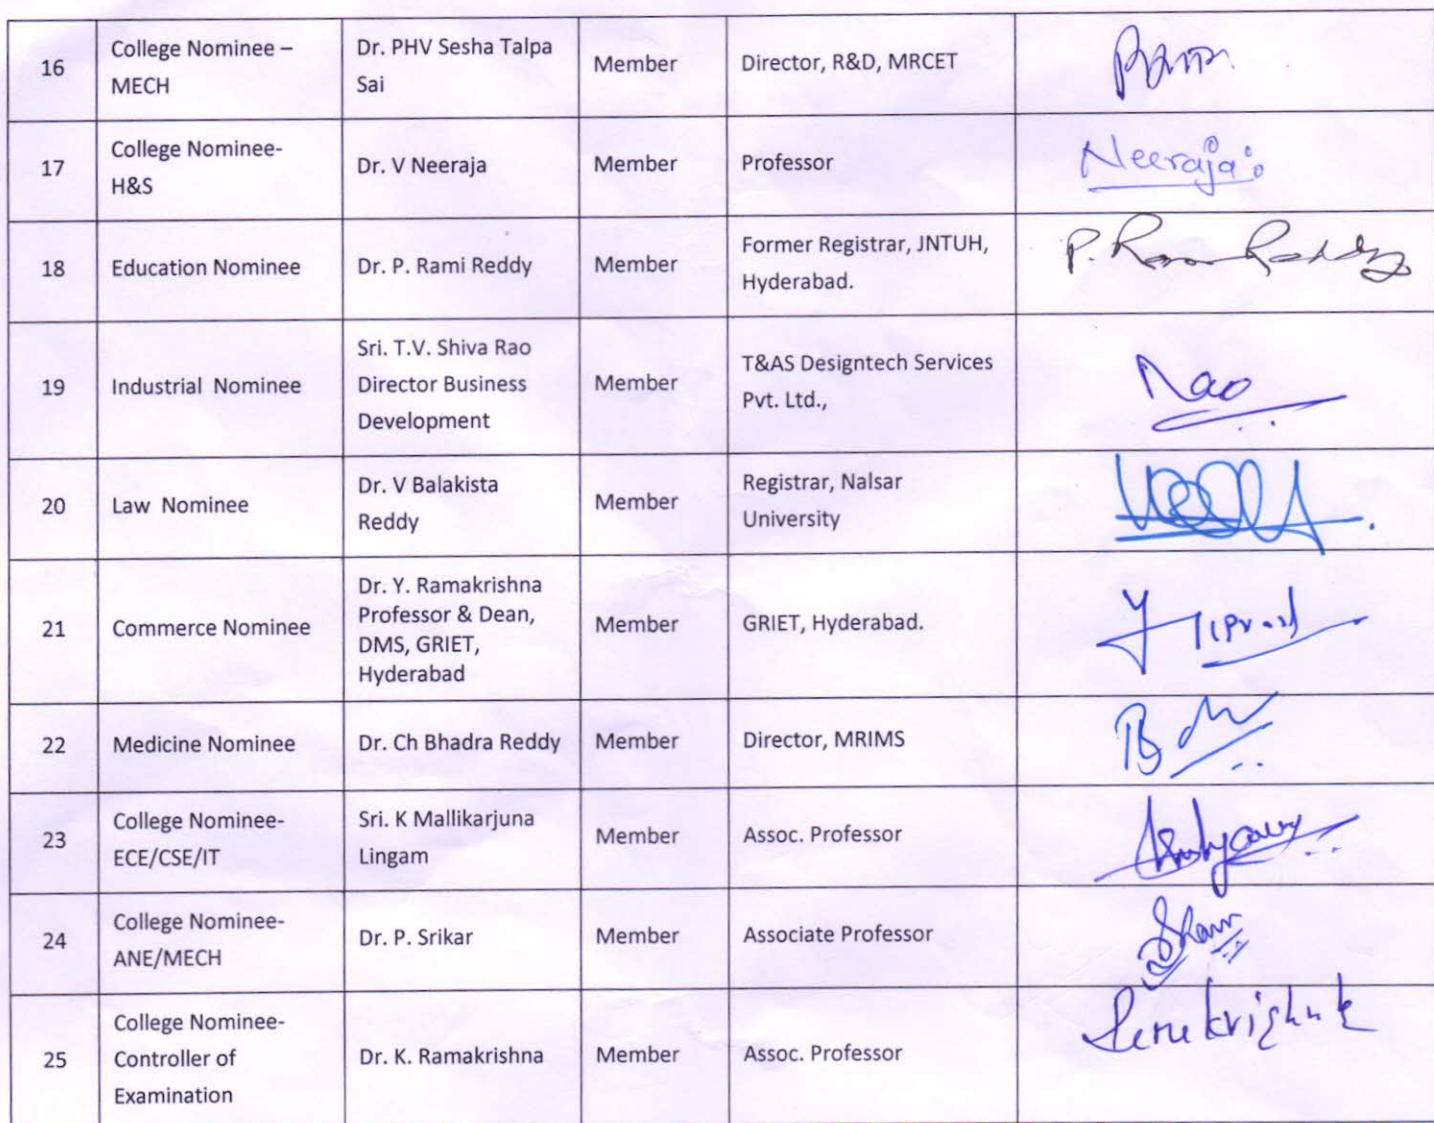 16
College Nominee –
MECH
Dr. PHV Sesha Talpa
Sai
Member
Director, R&D, MRCET
17
College Nominee-
H&S
Dr. V Neeraja
Member
Professor
Neeraja
18
Education Nominee
Dr. P. Rami Reddy
Member
Former Registrar, JNTUH,
Hyderabad.
P. Rami Reddy
19
Industrial Nominee
Sri. T.V. Shiva Rao
Director Business
Development
Member
T&AS Designtech Services
Pvt. Ltd.,
Rao
20
Law Nominee
Dr. V Balakista
Reddy
Member
Registrar, Nalsar
University
21
Commerce Nominee
Dr. Y. Ramakrishna
Professor & Dean,
DMS, GRIET,
Hyderabad
Member
GRIET, Hyderabad.
22
Medicine Nominee
Dr. Ch Bhadra Reddy
Member
Director, MRIMS
23
College Nominee-
ECE/CSE/IT
Sri. K Mallikarjuna
Lingam
Member
Assoc. Professor
24
College Nominee-
ANE/MECH
Dr. P. Srikar
Member
Associate Professor
25
College Nominee-
Controller of
Examination
Dr. K. Ramakrishna
Member
Assoc. Professor